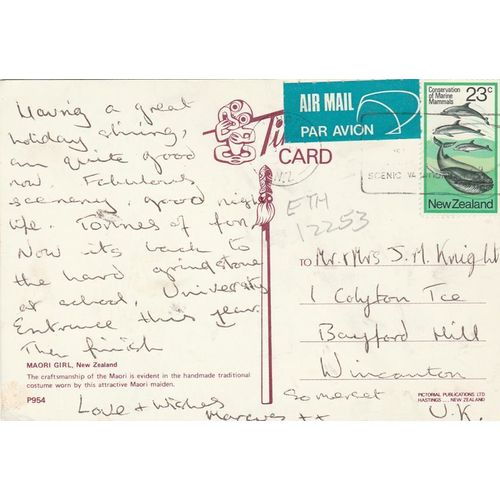 Having a great
holiday skiing,
am quite good
now. Fabulous
scenery, good night
life. Tonnes of fun.
Now its back to
the hard grindstone
at school. University
Entrance this year.
Then finish
MAORI GIRL, New Zealand
The craftsmanship of the Maori is evident in the handmade traditional
costume worn by this attractive Maori maiden.
P954
Love + Wishes
Marcus xx
AIR MAIL
PAR AVION
CARD
Conservation
of Marine
Mammals
23c
New Zealand
N.Z.
SCENIC
ETH
12253
TO Mr. & Mrs J. M. Knight
1 Colyton Tce
Bayford Hill
Wincanton
Somerset
U.K.
PICTORIAL PUBLICATIONS LTD
HASTINGS ... NEW ZEALAND